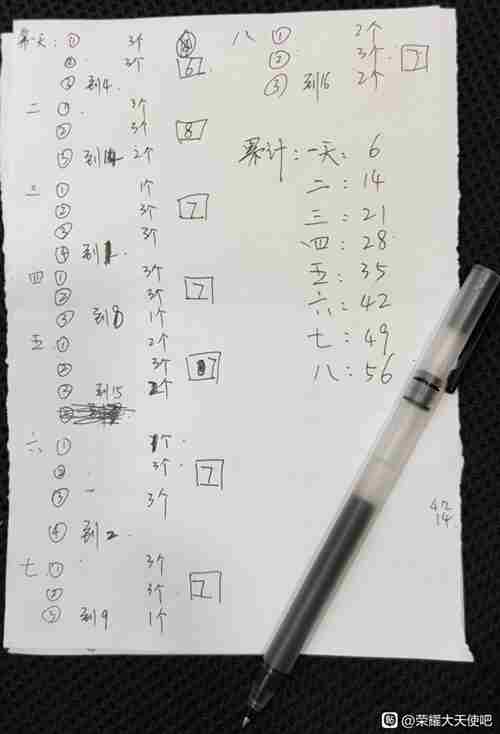 第一天：① 3个
② 3个 6
③ 到4
二 ① 3个
② 3个 8
③ 到14 2个
三 ① 1个
② 3个 7
③ 3个
④ 到1
四 ① 3个
② 3个 7
③ 到8 1个
五 ① 2个
② 3个 7
③ 到15 2个
六 ① 1个
② 3个 7
③ 3个
④ 到2
七 ① 3个
② 3个 7
③ 到9 1个
八 ① 2个
② 3个 7
③ 到16 2个
累计：一天：6
二：14
三：21
四：28
五：35
六：42
七：49
八：56
42
14
贴 @荣耀大天使吧